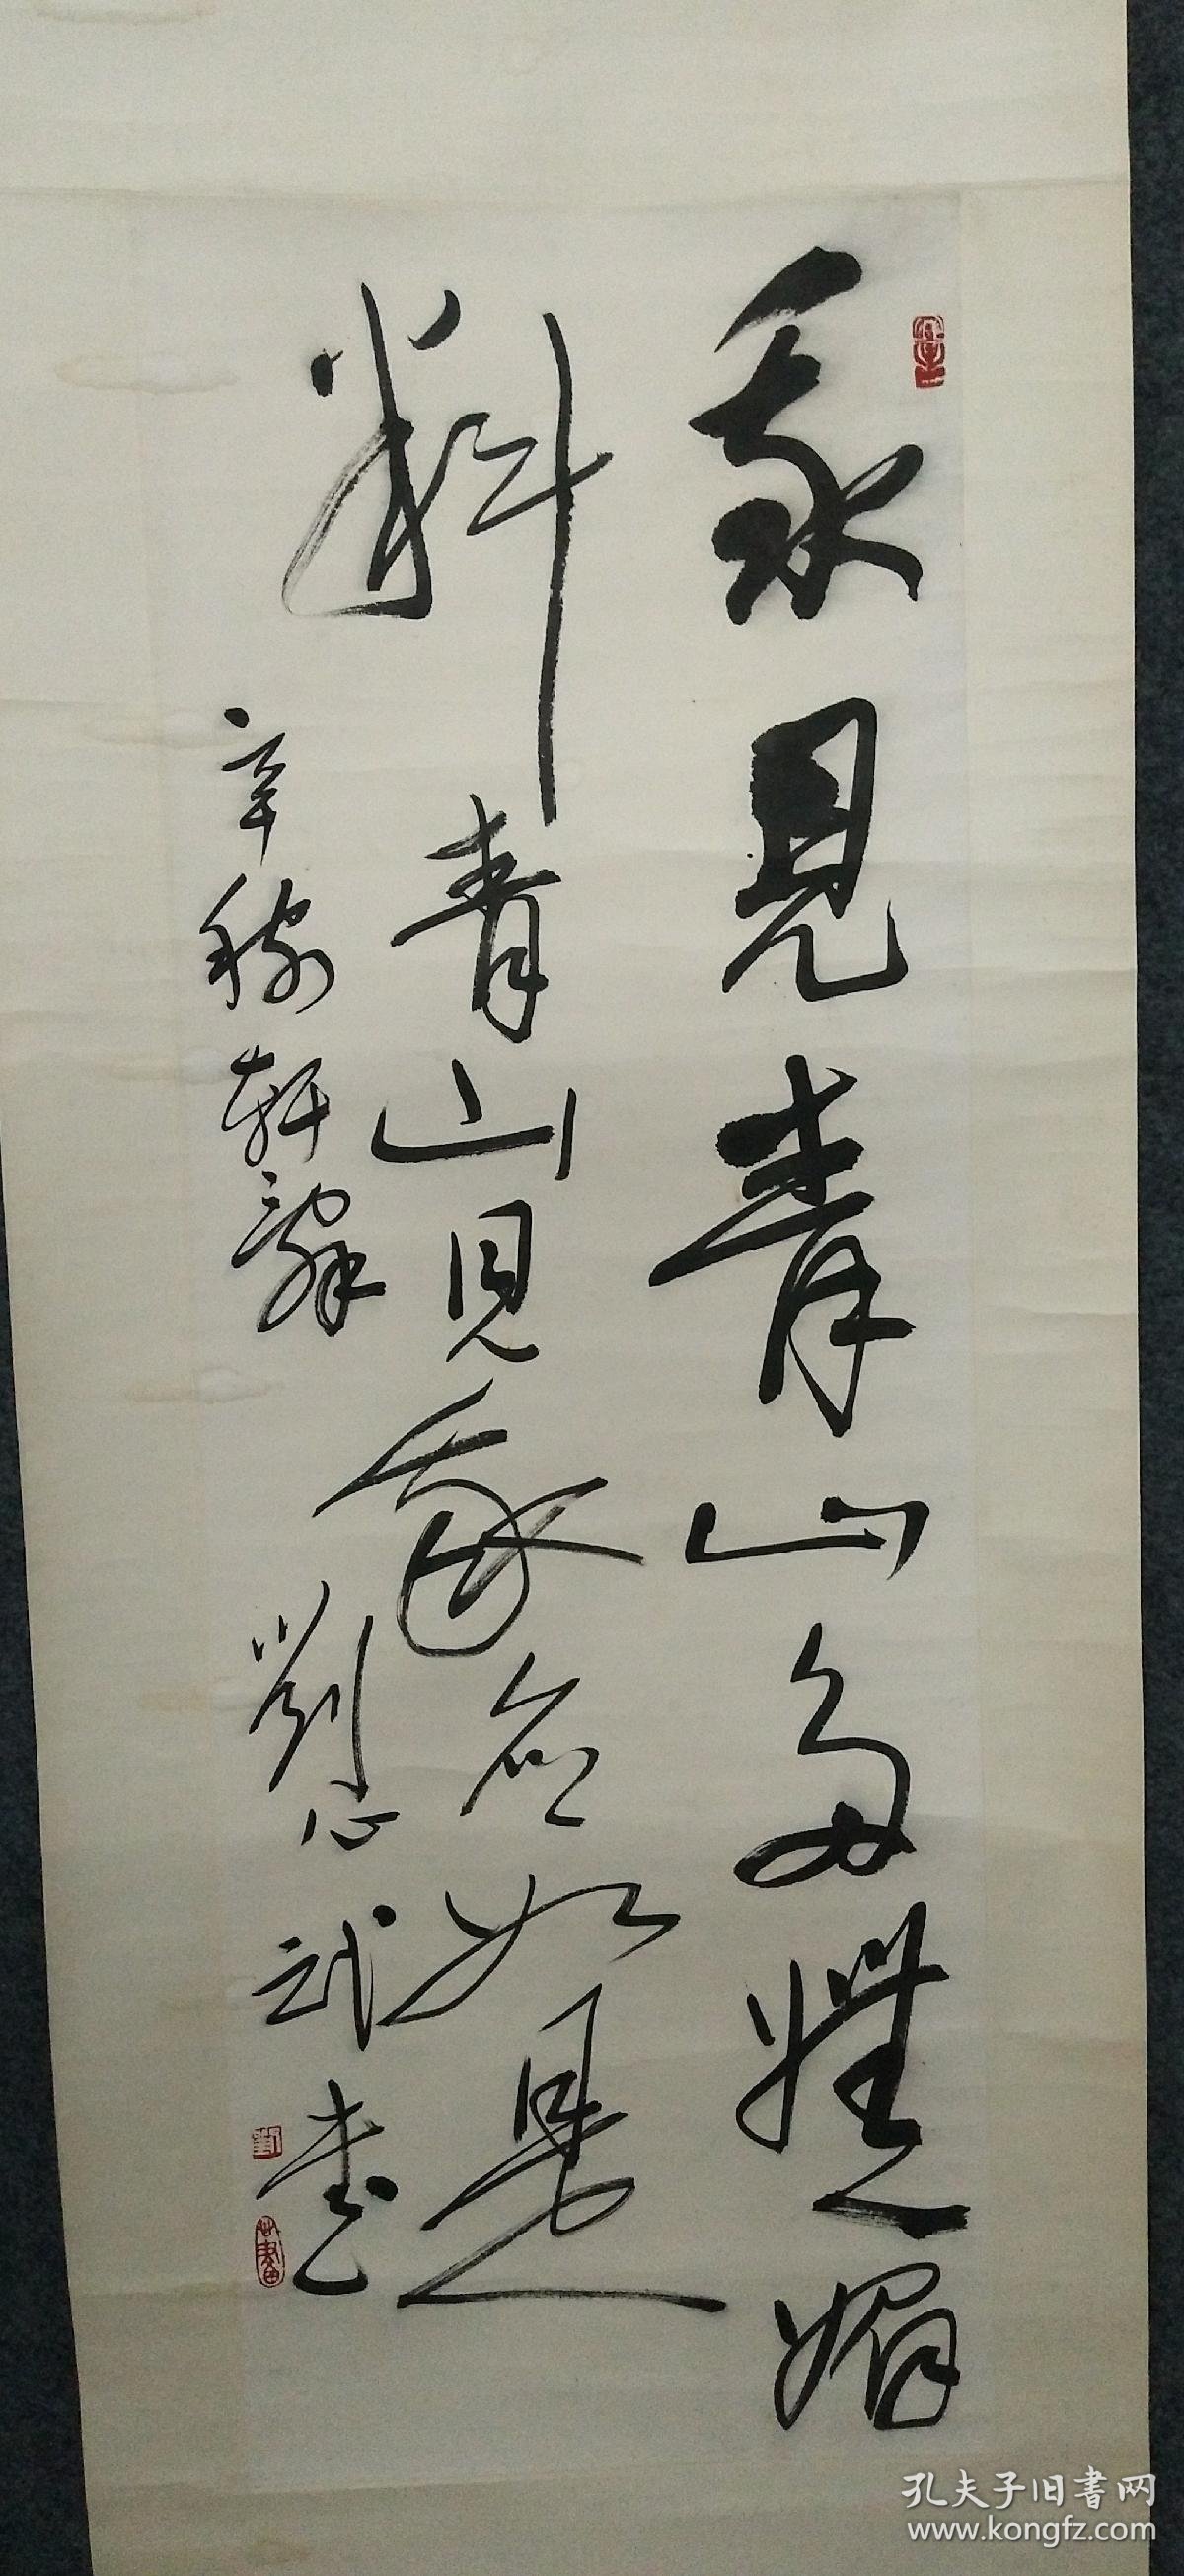 我見青山多嫵媚
料青山見我應如是
辛稼軒辭 劉心武書
孔夫子旧書网
www.kongfz.com